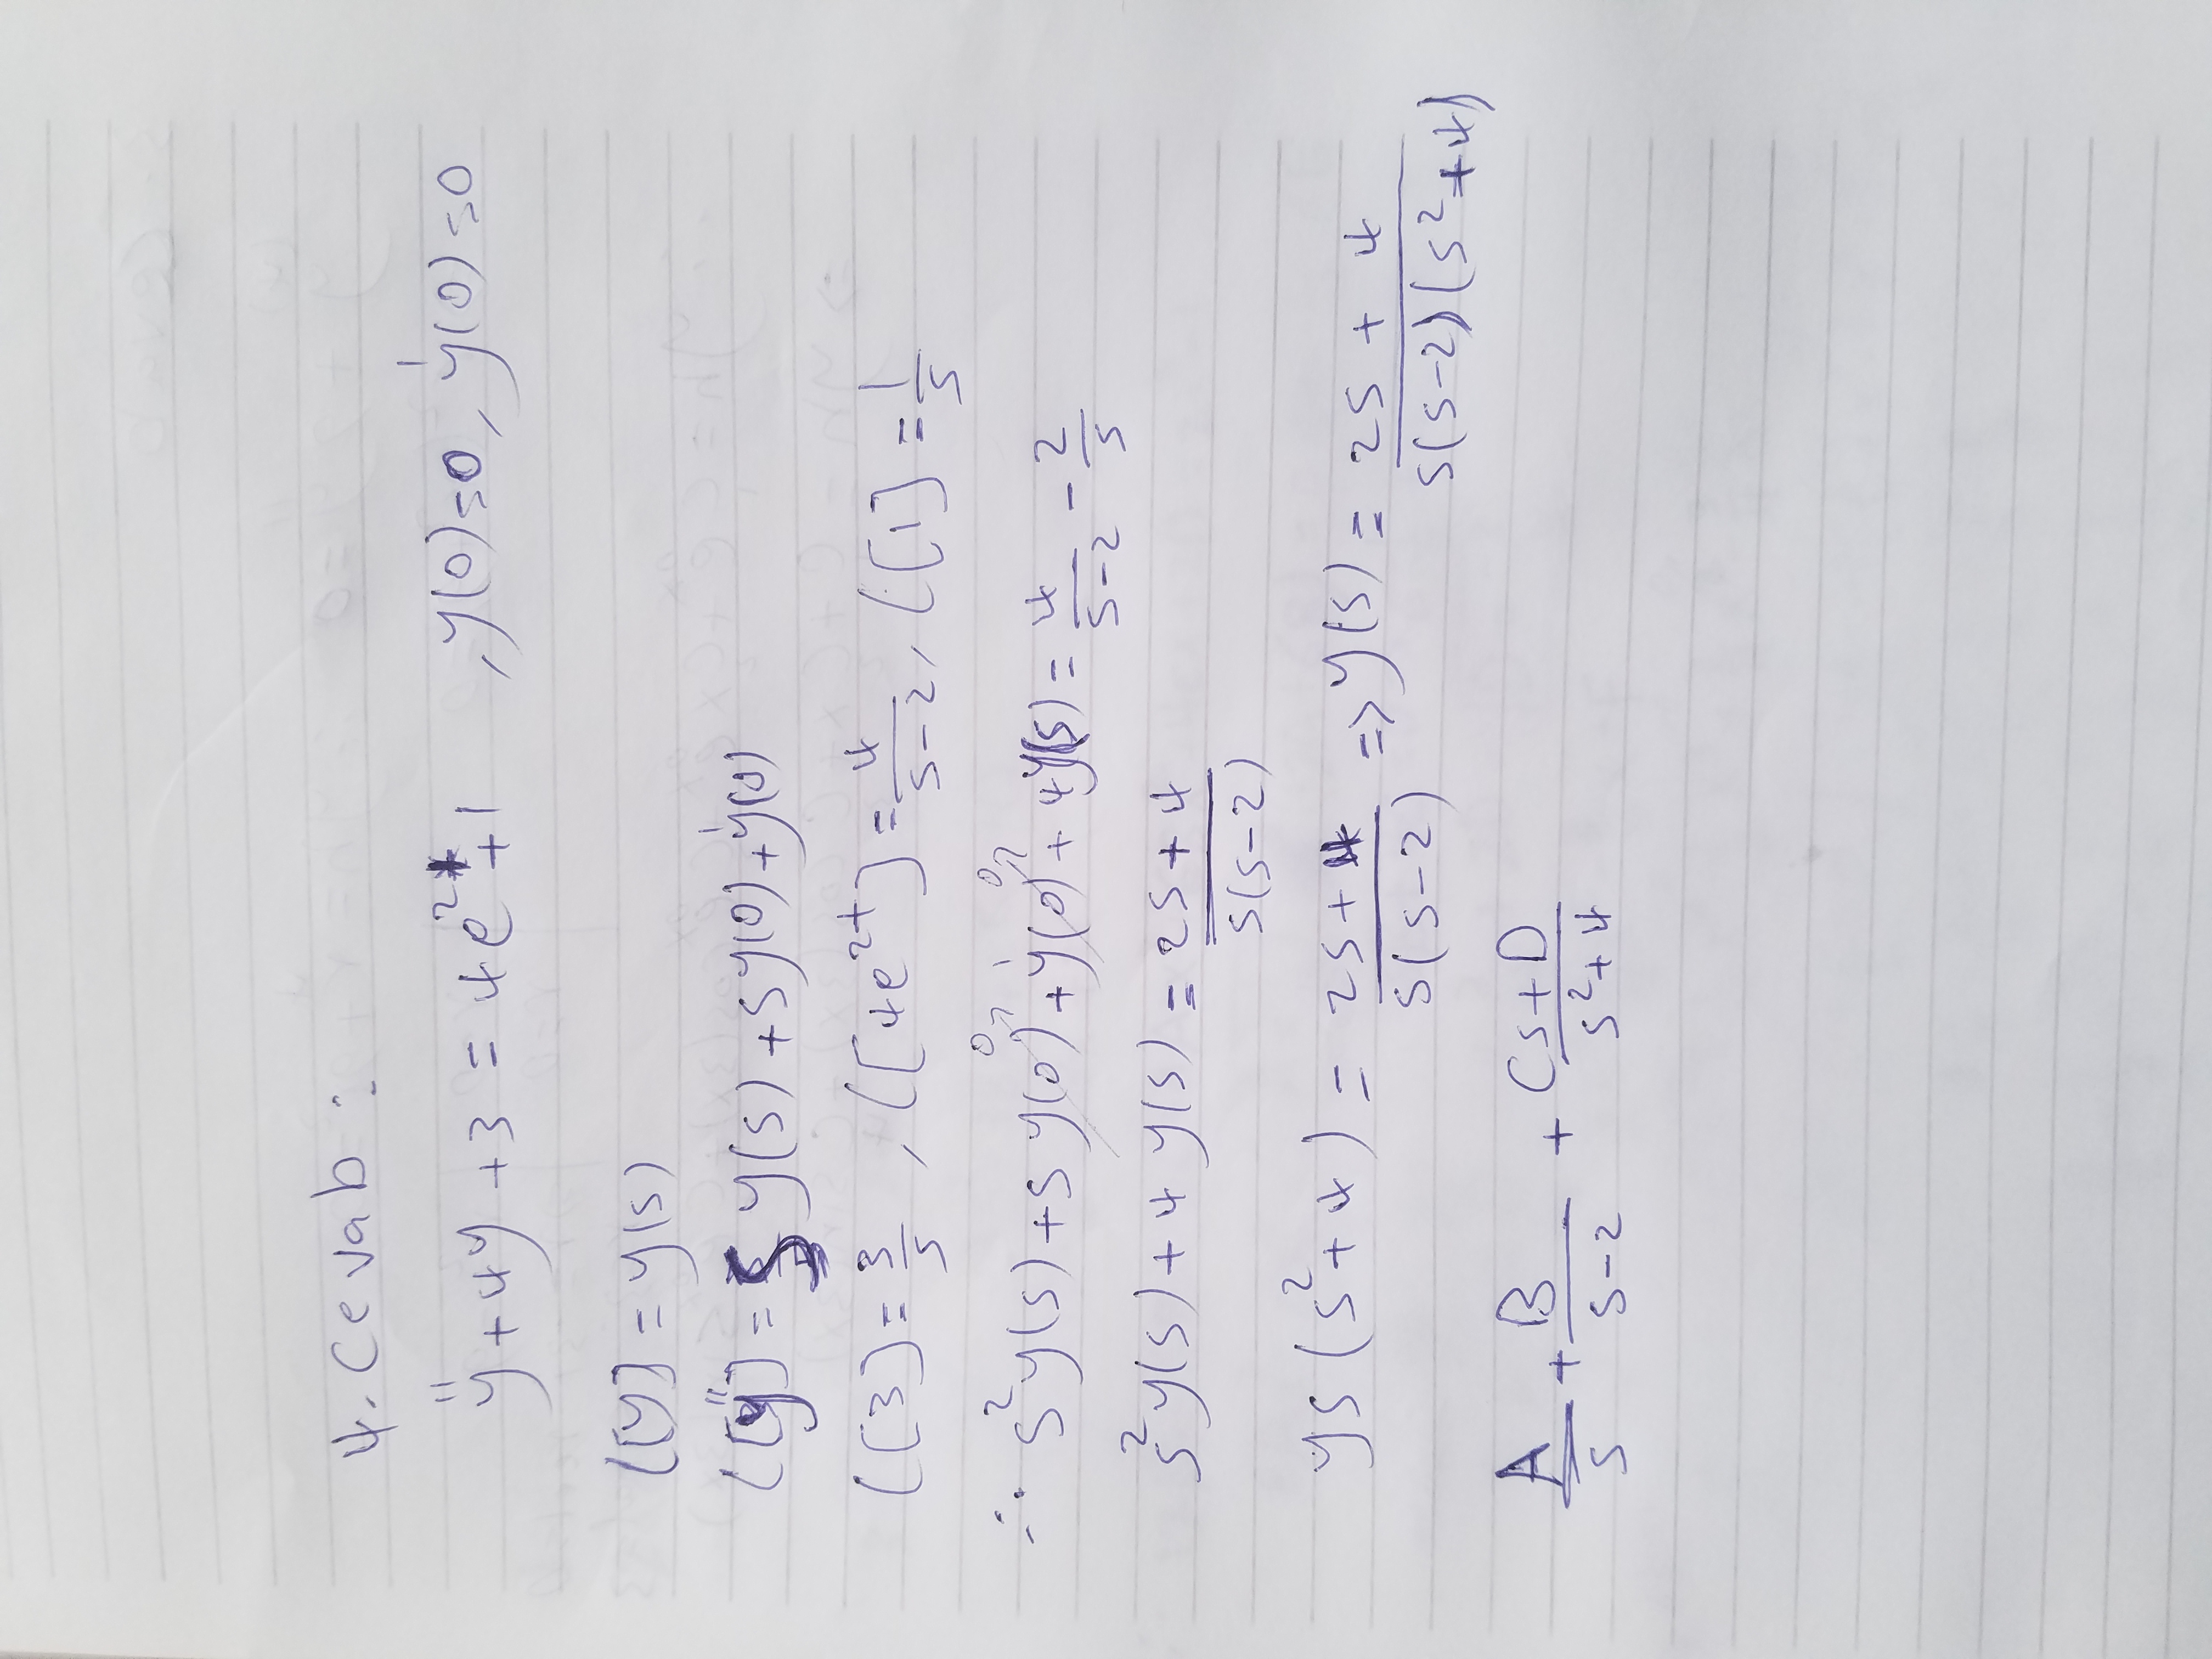 4. Cevab :
y'' + 4y + 3 = 4e^2t + 1 , y(0) = 0 , y'(0) = 0
L[y] = y(s)
L[y''] = s^2 y(s) + s y(0) + y'(0)
L[3] = 3/s , L[4e^2t] = 4/(s-2) , L[1] = 1/s
∴ s^2 y(s) + s y(0) + y'(0) + 4y(s) = 4/(s-2) - 2/s
s^2 y(s) + 4 y(s) = (2s + 4)/(s(s-2))
ys (s^2 + 4) = (2s + 4)/(s(s-2)) => y(s) = (2s + 4)/(s(s-2)(s^2+4))
A/s + B/(s-2) + (Cs+D)/(s^2+4)